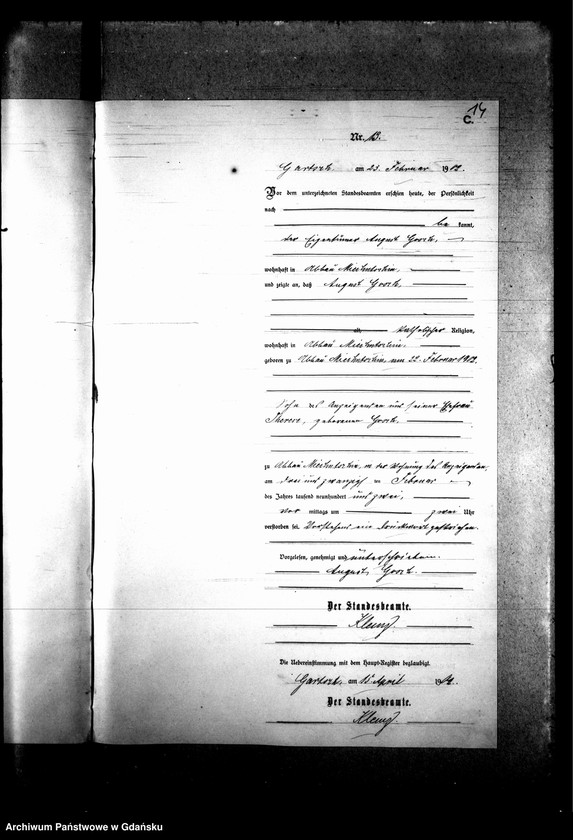 14
C.
Nr. 13.
am 23. Februar 1902.
Vor dem unterzeichneten Standesbeamten erschien heute, der Persönlichkeit
nach
be kannt,
der Eigentümer August
wohnhaft in Abbau
und zeigte an, daß August
alt, katholischer Religion,
wohnhaft in Abbau
geboren zu Abbau am 22. Februar 1902,
Sohn des Anzeigenden und seiner Ehefrau
Therese, geborenen
zu Abbau in der Wohnung des Anzeigenden,
am drei und zwanzigsten Februar
des Jahres tausend neunhundert und zwei,
vor mittags um zwei Uhr
verstorben sei. Vorstehend ein Druckwort gestrichen.
Vorgelesen, genehmigt und unterschrieben.
August
Der Standesbeamte.
Die Uebereinstimmung mit dem Haupt-Register beglaubigt.
am April 19
Der Standesbeamte.
Archiwum Państwowe w Gdańsku